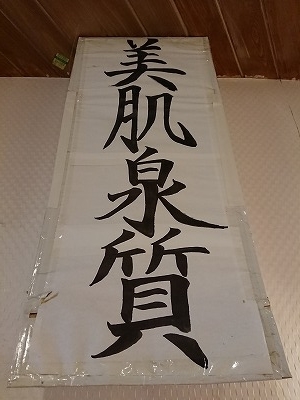 美肌泉質